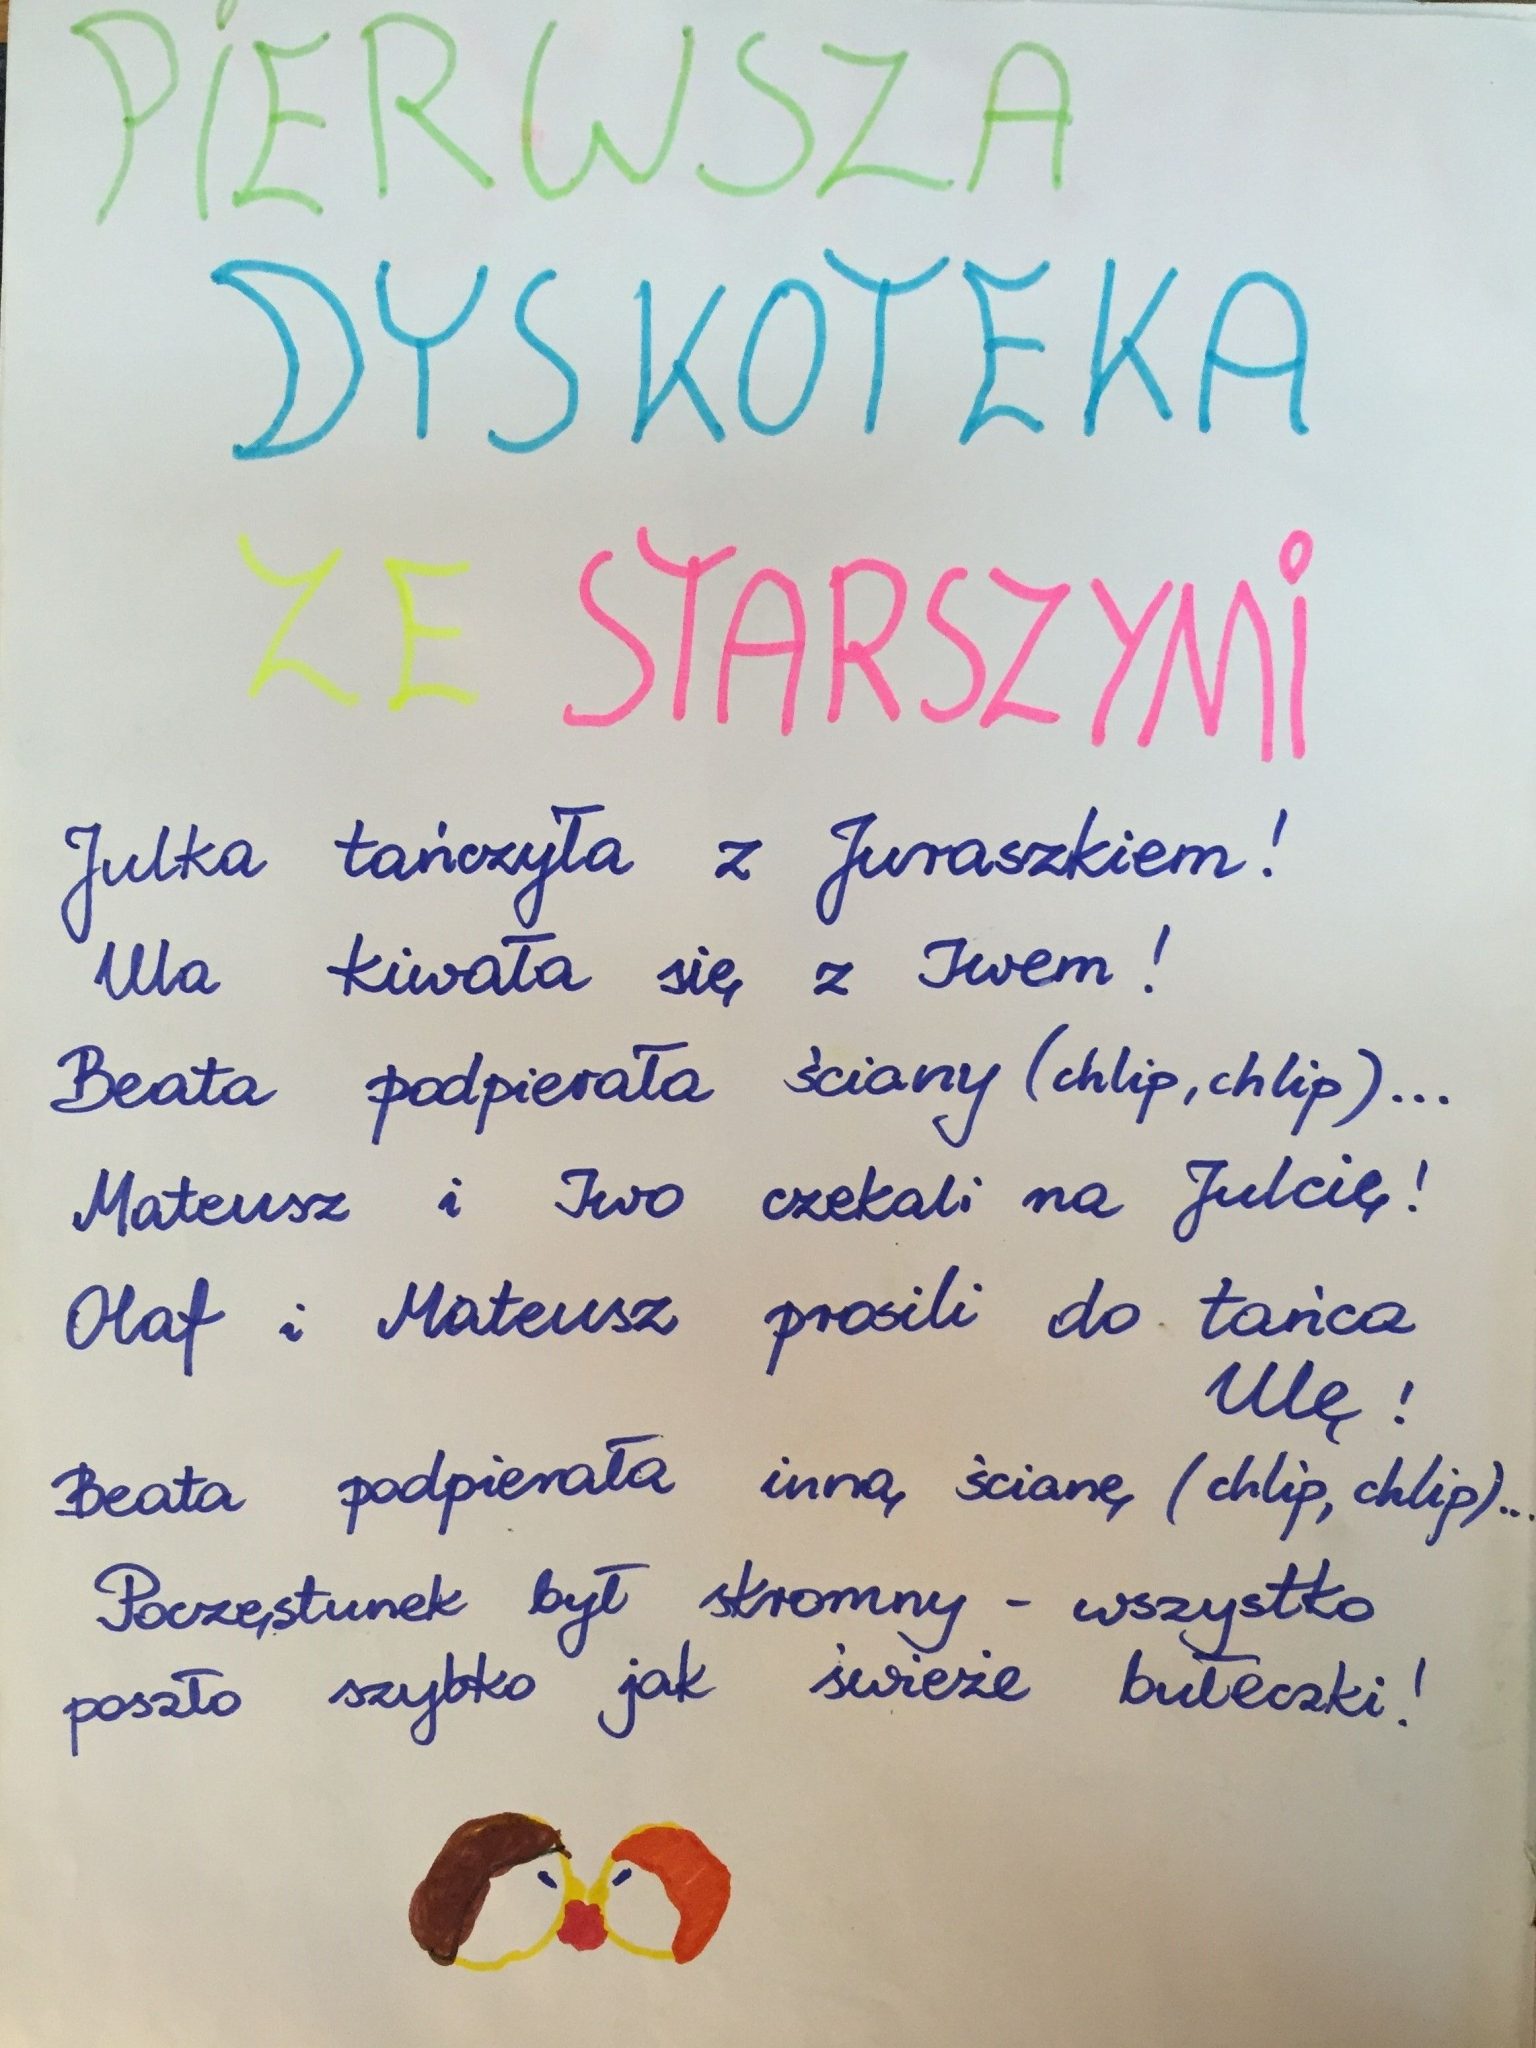 PIERWSZA
DYSKOTEKA
ZE STARSZYMI
Julka tańczyła z Juraszkiem!
Ula kiwała się z Iwem!
Beata podpierała ściany (chlip, chlip)...
Mateusz i Iwo czekali na Julcię!
Olaf i Mateusz prosili do tańca
Ulę!
Beata podpierała inną ścianę (chlip, chlip)...
Poczęstunek był skromny - wszystko
poszło szybko jak świeże bułeczki!